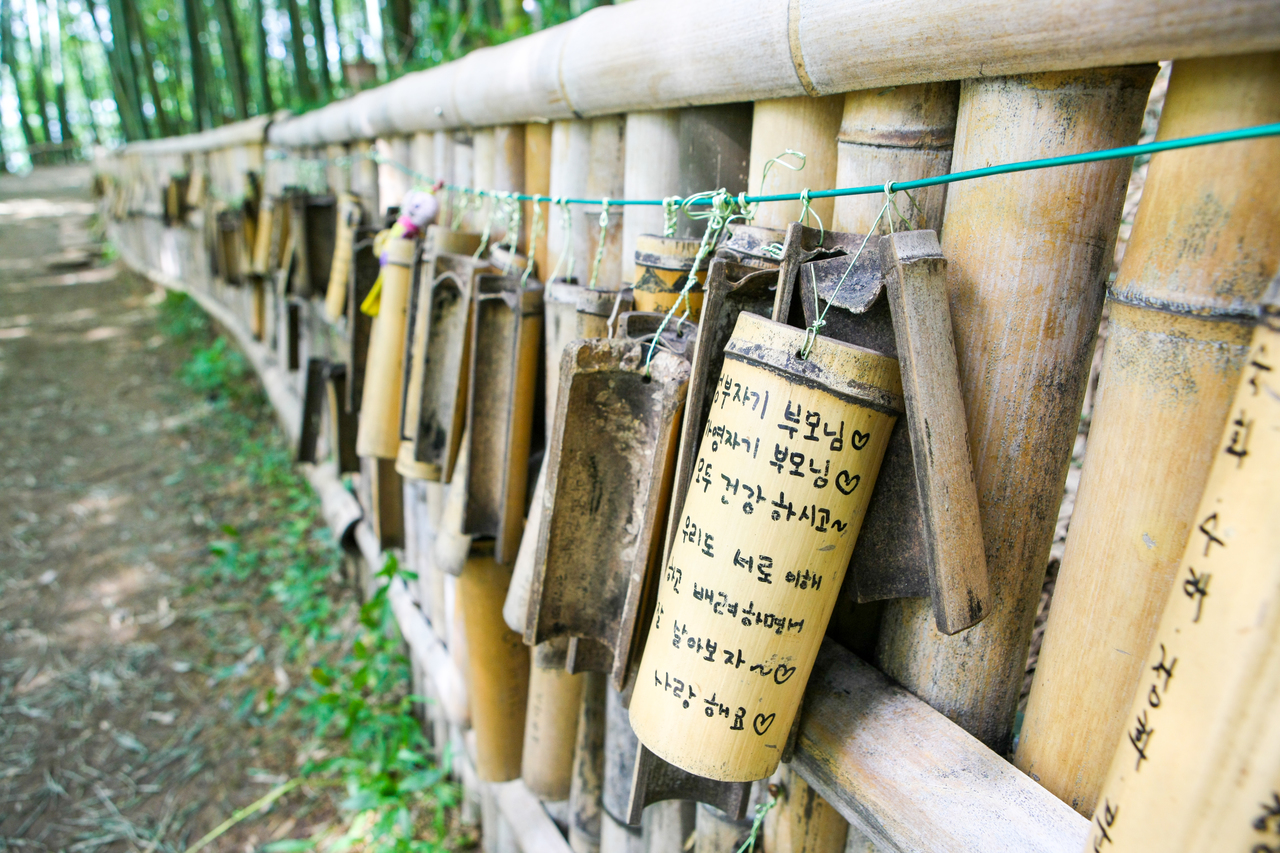 부자기 부모님♡
영자기 부모님♡
모두 건강하시고~
우리도 서로 이해
하고 배려하면서
잘 살아보자~♡
사랑해요♡